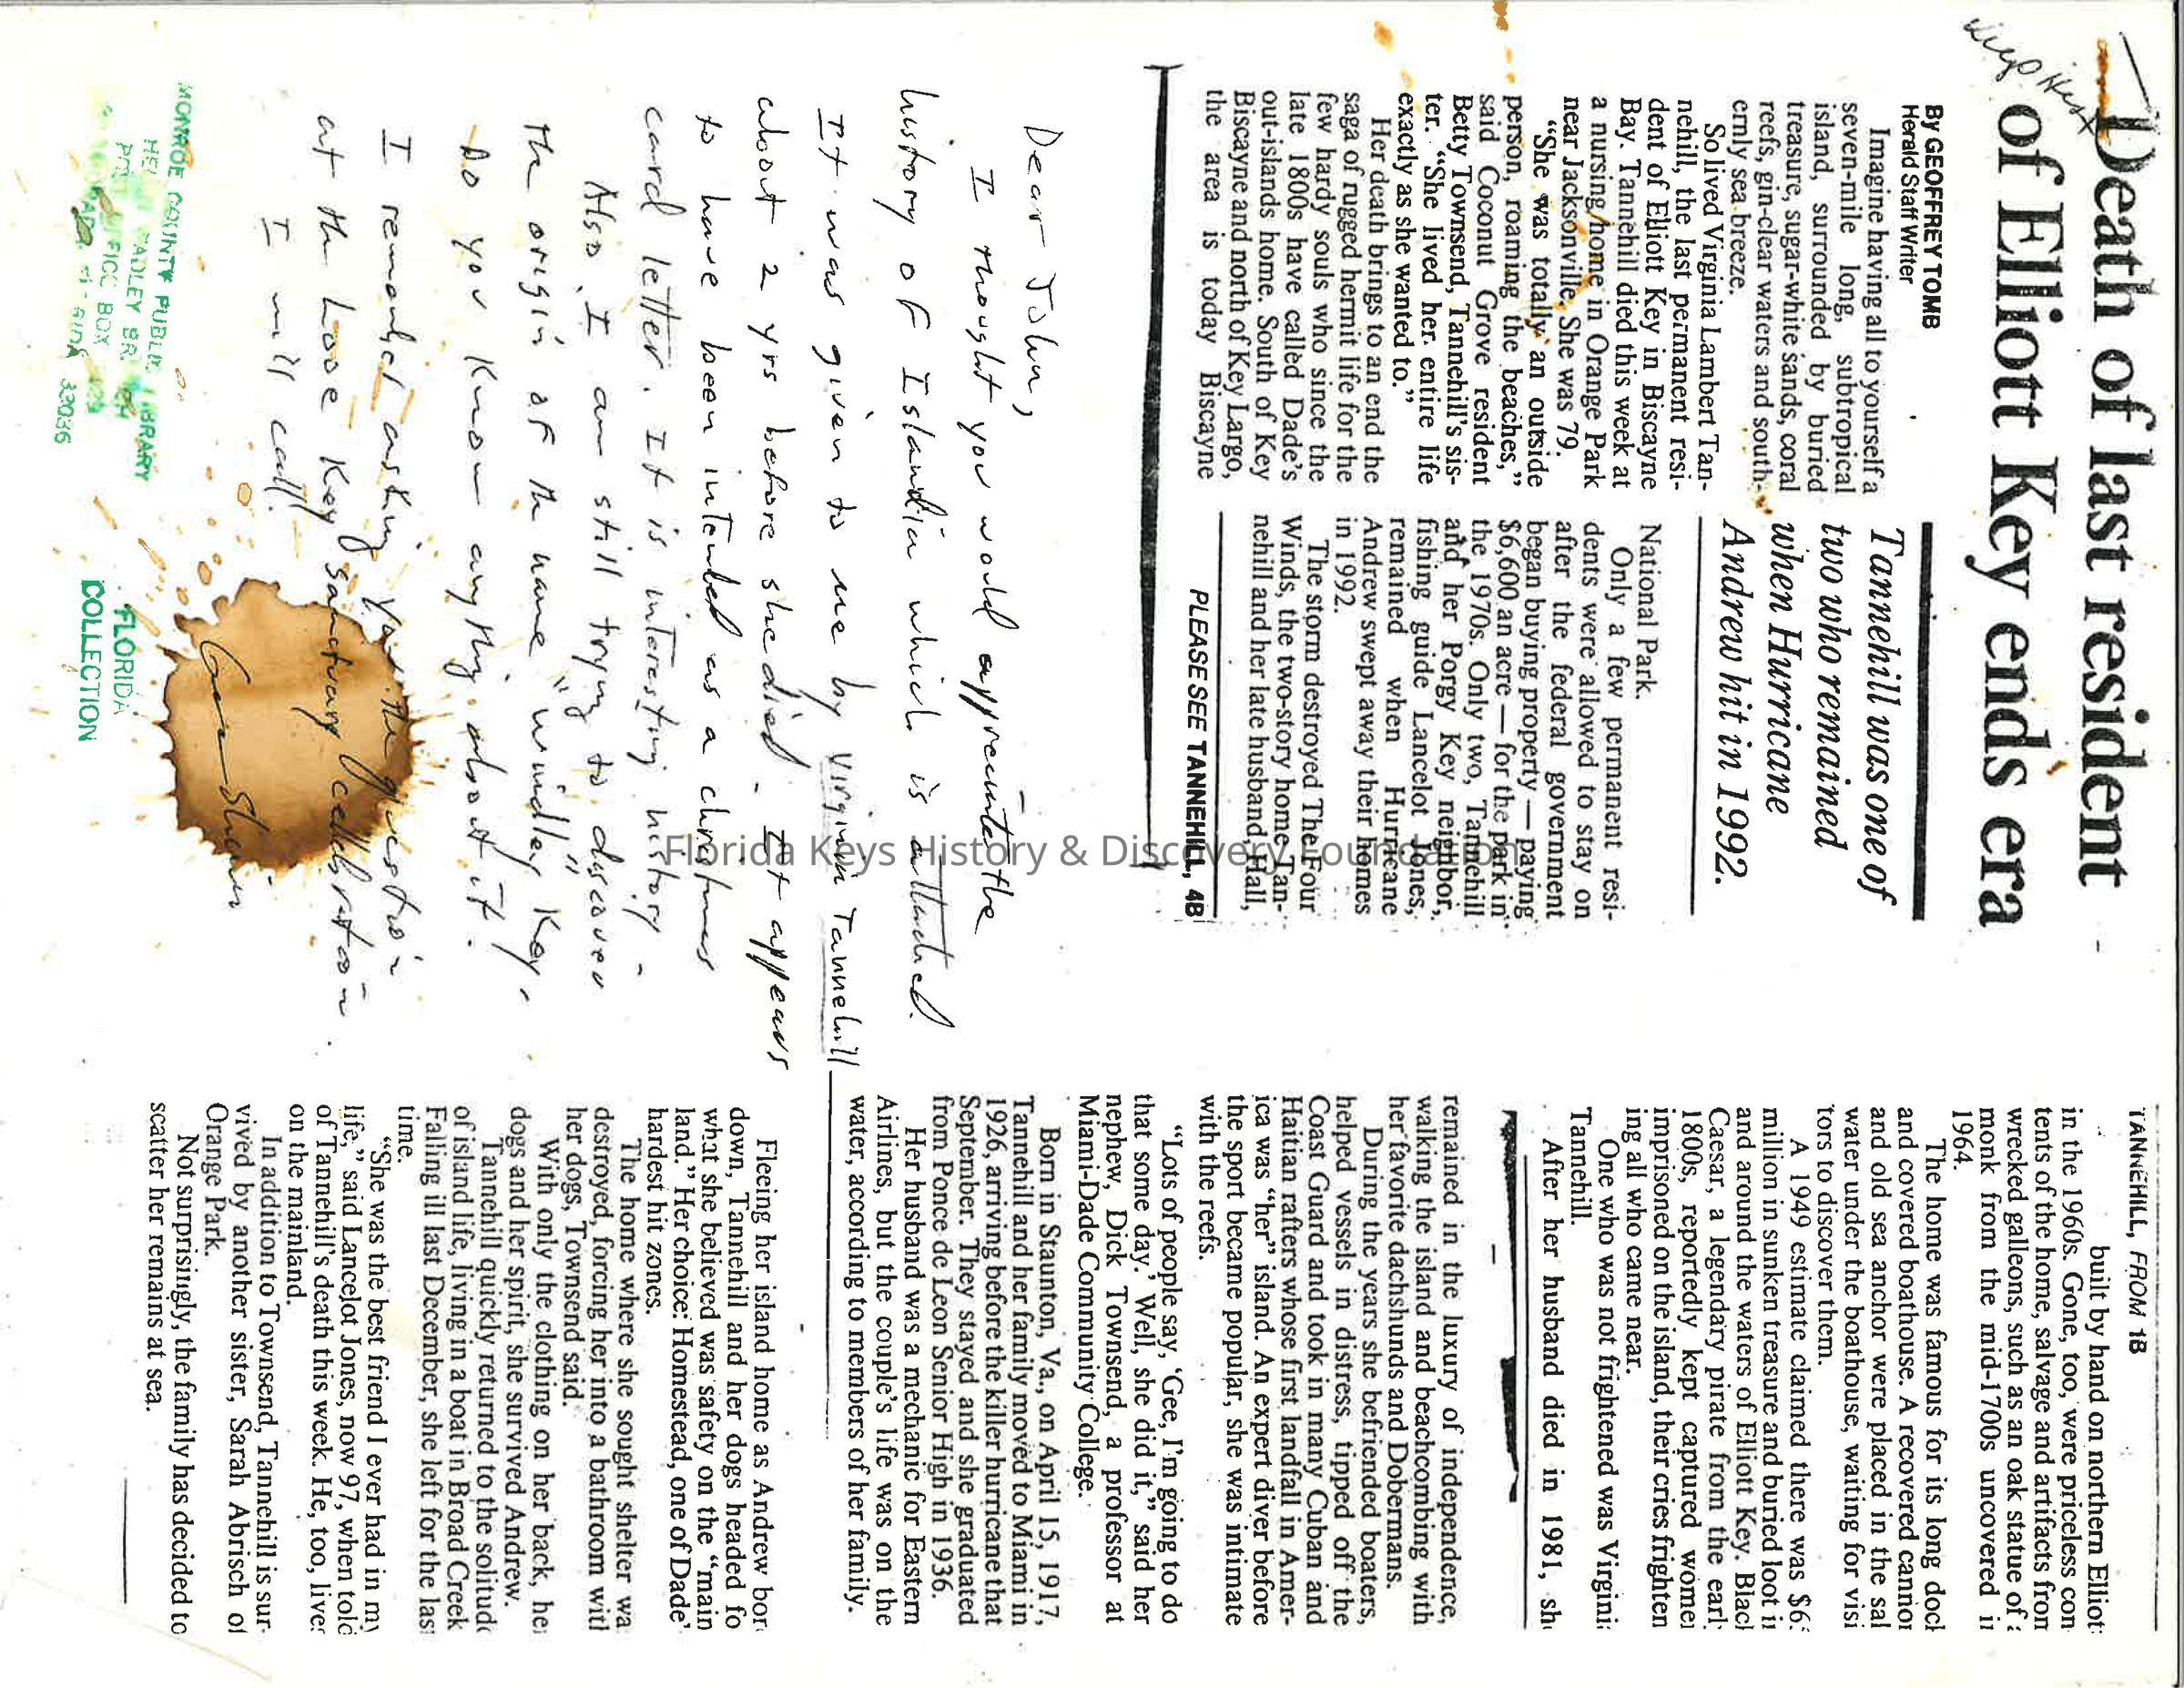 Death of last resident
of Elliott Key ends era
Keys Hist
By GEOFFREY TOMB
Herald Staff Writer
Imagine having all to yourself a
seven-mile long, subtropical
island, surrounded by buried
treasure, sugar-white sands, coral
reefs, gin-clear waters and south-
ernly sea breeze.
So lived Virginia Lambert Tan-
nehill, the last permanent resi-
dent of Elliott Key in Biscayne
Bay. Tannehill died this week at
a nursing home in Orange Park
near Jacksonville. She was 79.
“She was totally an outside
person, roaming the beaches,”
said Coconut Grove resident
Betty Townsend, Tannehill's sis-
ter. “She lived her entire life
exactly as she wanted to.”
Her death brings to an end the
saga of rugged hermit life for the
few hardy souls who since the
late 1800s have called Dade's
out-islands home. South of Key
Biscayne and north of Key Largo,
the area is today Biscayne
Tannehill was one of
two who remained
when Hurricane
Andrew hit in 1992.
National Park.
Only a few permanent resi-
dents were allowed to stay on
after the federal government
began buying property — paying
$6,600 an acre — for the park in
the 1970s. Only two, Tannehill
and her Porgy Key neighbor,
fishing guide Lancelot Jones,
remained when Hurricane
Andrew swept away their homes
in 1992.
The storm destroyed The Four
Winds, the two-story home Tan-
nehill and her late husband, Hall,
PLEASE SEE TANNEHILL, 4B
Dear John,
I thought you would appreciate the
history of Islandia which is attached.
It was given to me by Virginia Tannehill
about 2 yrs before she died. It appears
to have been intended as a christmas
card letter. It is interesting history.
Also, I am still trying to discover
the origin of the name "windley Key,"
Do you know anything about it?
I remember asking you the question
at the Looe Key Sanctuary celebration.
I will call.
MONROE COUNTY PUBLIC LIBRARY
33036
FLORIDA
COLLECTION
TANNEHILL, FROM 1B
built by hand on northern Elliott
in the 1960s. Gone, too, were priceless con
tents of the home, salvage and artifacts from
wrecked galleons, such as an oak statue of a
monk from the mid-1700s uncovered in
1964.
The home was famous for its long dock
and covered boathouse. A recovered cannon
and old sea anchor were placed in the sal
water under the boathouse, waiting for visi
tors to discover them.
A 1949 estimate claimed there was $6
million in sunken treasure and buried loot in
and around the waters of Elliott Key. Black
Caesar, a legendary pirate from the early
1800s, reportedly kept captured women
imprisoned on the island, their cries frighten
ing all who came near.
One who was not frightened was Virginia
Tannehill.
After her husband died in 1981, she
remained in the luxury of independence,
walking the island and beachcombing with
her favorite dachshunds and Dobermans.
During the years she befriended boaters,
helped vessels in distress, tipped off the
Coast Guard and took in many Cuban and
Haitian rafters whose first landfall in Amer-
ica was “her” island. An expert diver before
the sport became popular, she was intimate
with the reefs.
“Lots of people say, ‘Gee, I'm going to do
that some day.’ Well, she did it,” said her
nephew, Dick Townsend, a professor at
Miami-Dade Community College.
Born in Staunton, Va., on April 15, 1917,
Tannehill and her family moved to Miami in
1926, arriving before the killer hurricane that
September. They stayed and she graduated
from Ponce de Leon Senior High in 1936.
Her husband was a mechanic for Eastern
Airlines, but the couple's life was on the
water, according to members of her family.
Fleeing her island home as Andrew bore
down, Tannehill and her dogs headed fo
what she believed was safety on the “main
land.” Her choice: Homestead, one of Dade'
hardest hit zones.
The home where she sought shelter wa
destroyed, forcing her into a bathroom with
her dogs, Townsend said.
With only the clothing on her back, her
dogs and her spirit, she survived Andrew.
Tannehill quickly returned to the solitude
of island life, living in a boat in Broad Creek
Falling ill last December, she left for the last
time.
“She was the best friend I ever had in my
life,” said Lancelot Jones, now 97, when told
of Tannehill's death this week. He, too, lives
on the mainland.
In addition to Townsend, Tannehill is sur-
vived by another sister, Sarah Abrisch of
Orange Park.
Not surprisingly, the family has decided to
scatter her remains at sea.
Florida Keys History & Discovery Foundation